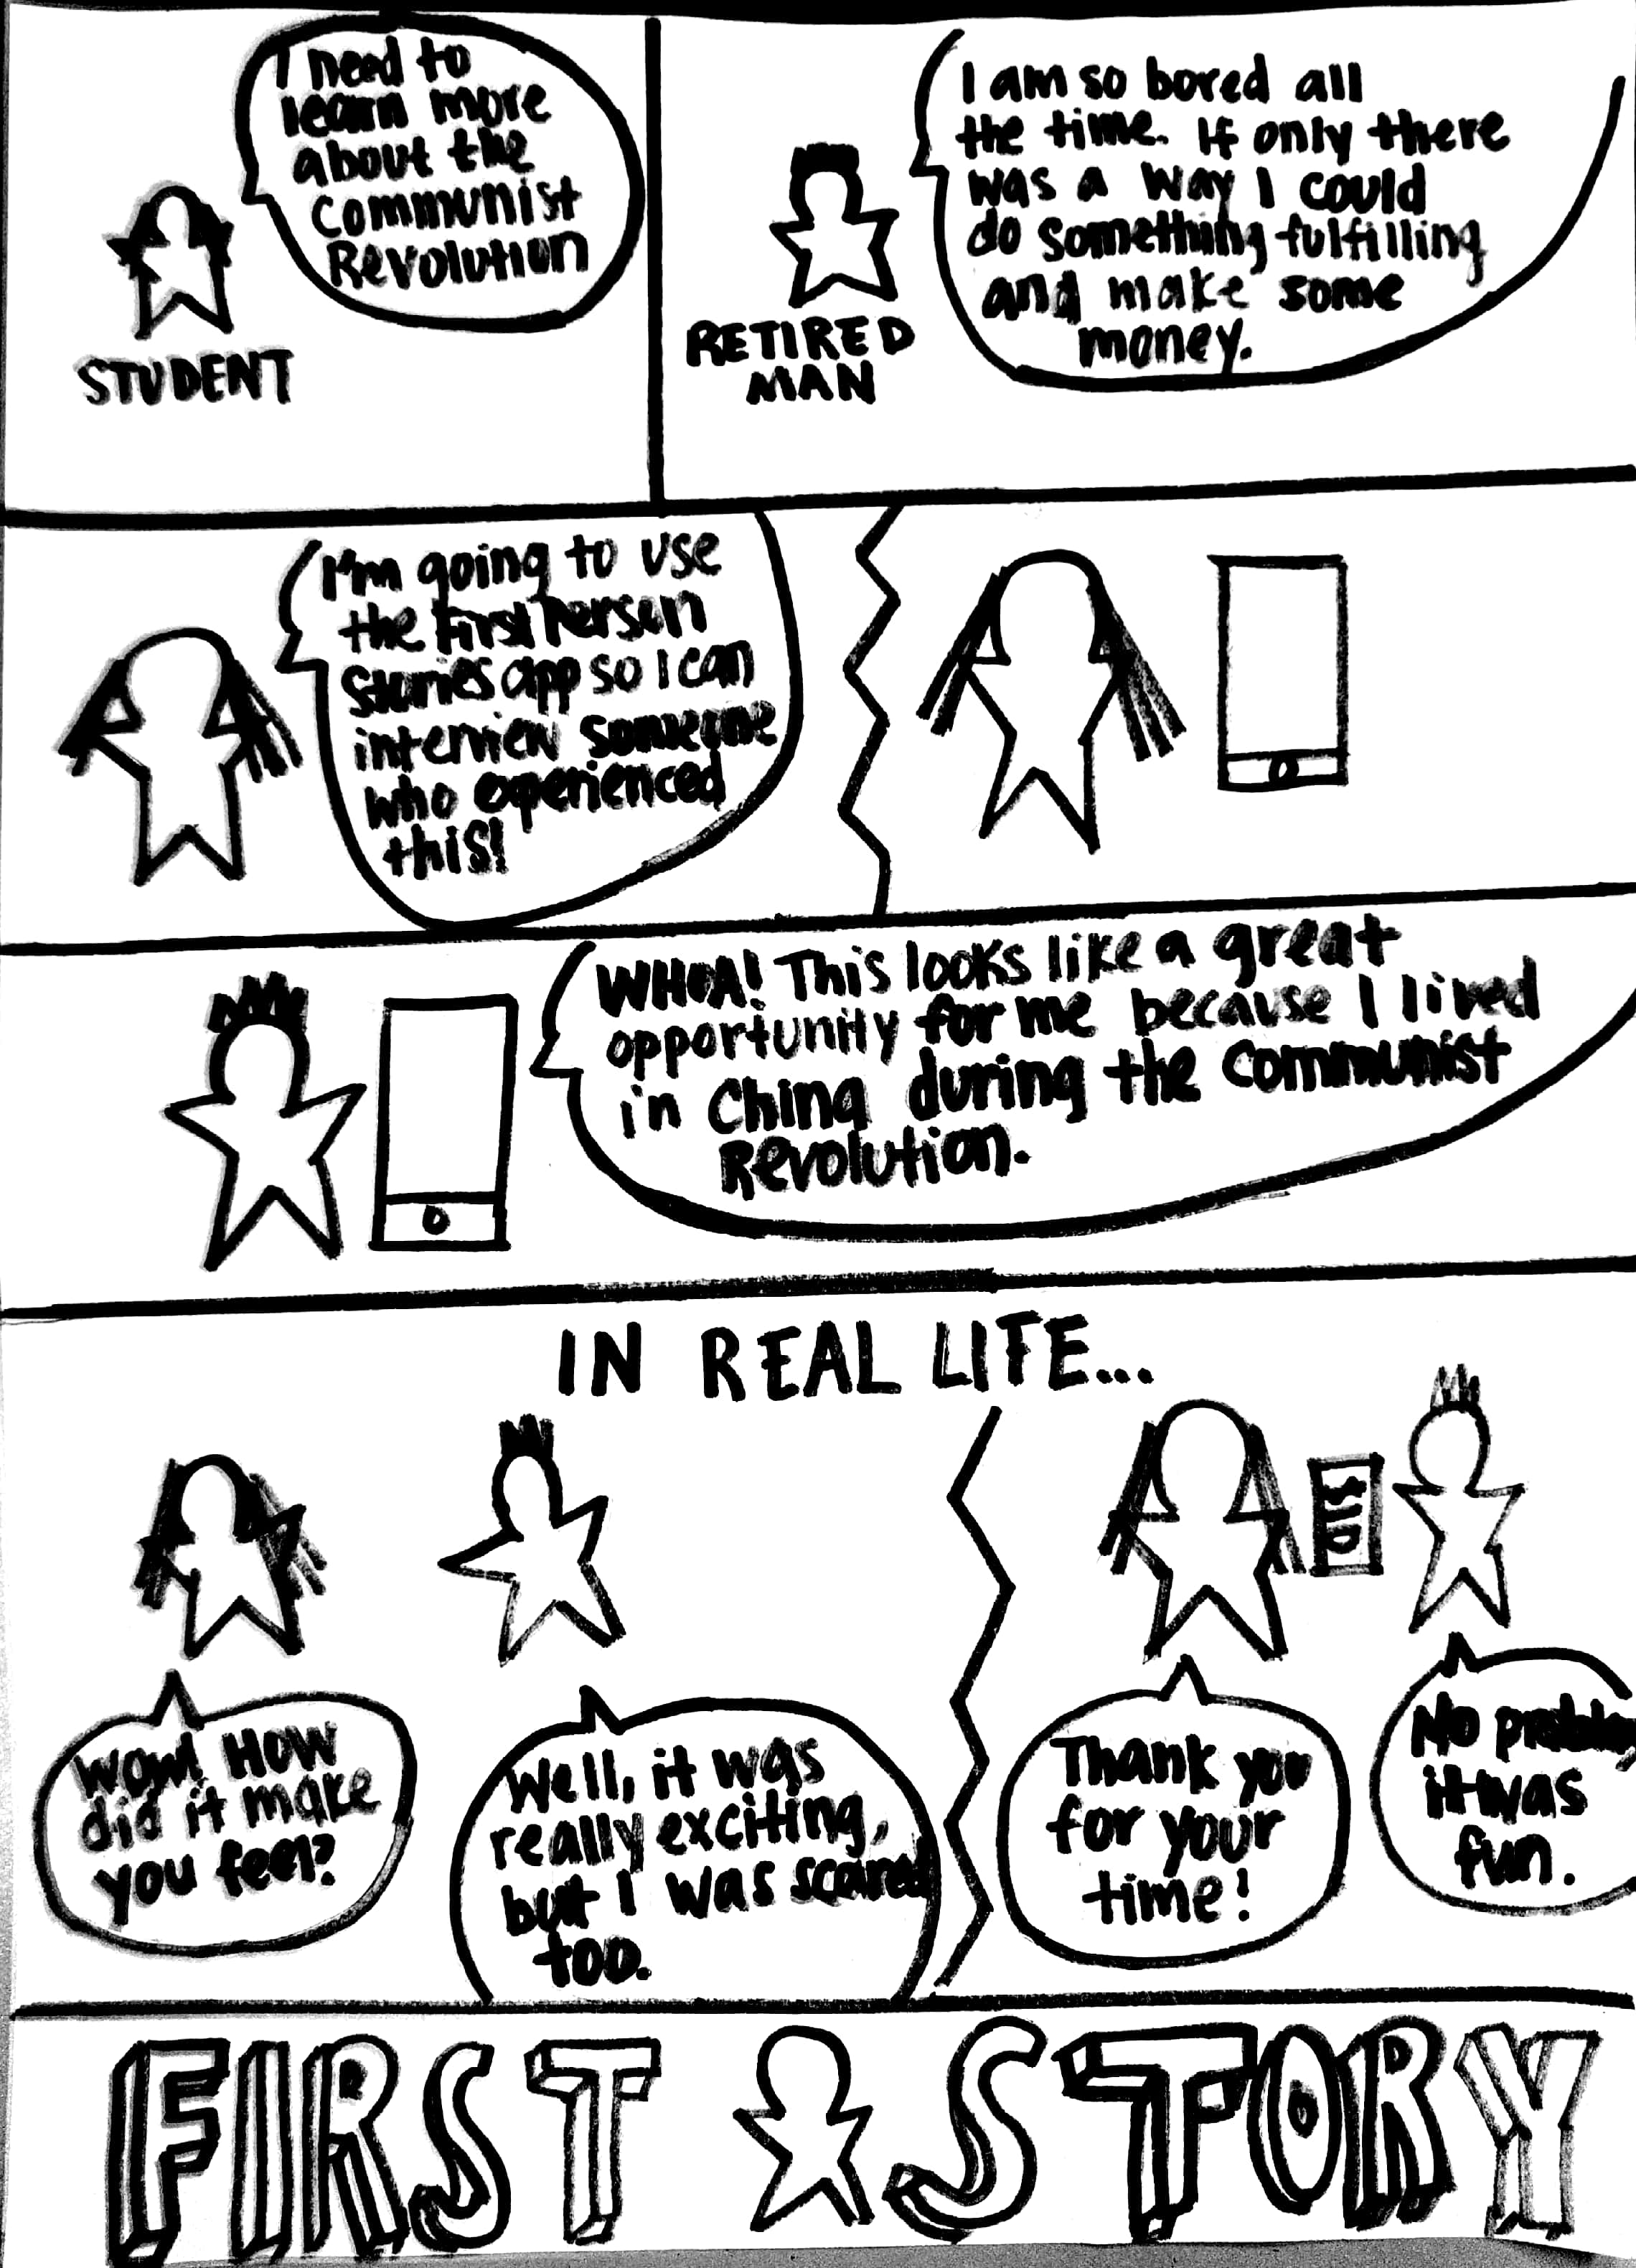 I need to
learn more
about the
Communist
Revolution
STUDENT
I am so bored all
the time. If only there
was a way I could
do something fulfilling
and make some
money.
RETIRED
MAN
I'm going to use
the First Person
Stories app so I can
interview someone
who experienced
this!
WHOA! This looks like a great
opportunity for me because I lived
in China during the Communist
Revolution.
IN REAL LIFE...
Wow! How
did it make
you feel?
Well, it was
really exciting,
but I was scared
too.
Thank you
for your
time!
No problem
it was
fun.
FIRST STORY